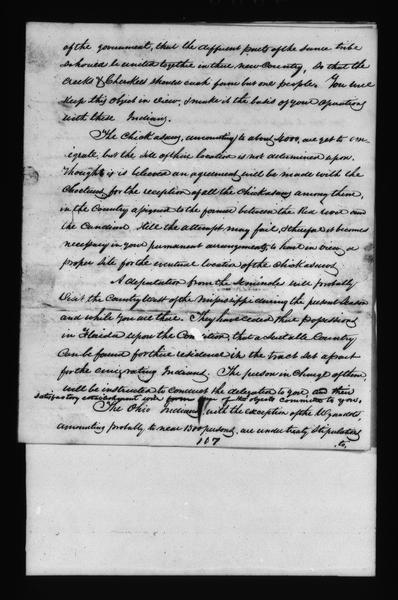 of the government, that the different parts of the same tribe
should be united together in their new Country, so that the
Creeks & Cherokees should each form but one people. You will
keep this object in view, & make it the basis of your operations
with these Indians.
The Chickasaws, amounting to about 4000, are yet to emi-
grate, but the site of their location is not determined upon.
Though it is believed an agreement will be made with the
Choctaws, for the reception of all the Chickasaws among them,
in the Country assigned to the former between the Red river and
the Canadian. Still the attempt may fail, & therefore it becomes
necessary in your permanent arrangements, to have in view a
proper site for the eventual location of the Chickasaws.
A deputation from the Seminoles will probably
visit the Country west of the Mississippi during the present season
and while you are there. They have ceded their possessions
in Florida upon the Condition, that a suitable Country
Can be found for their residence in the tract set apart
for the emigrating Indians. The person in Charge of them,
will be instructed to conduct the delegation to you, and their
satisfactory establishment will form one of the objects committed to you.
The Ohio Indians, with the exception of the Wyandots,
amounting probably to near 1300 persons, are under treaty stipulations
107
to